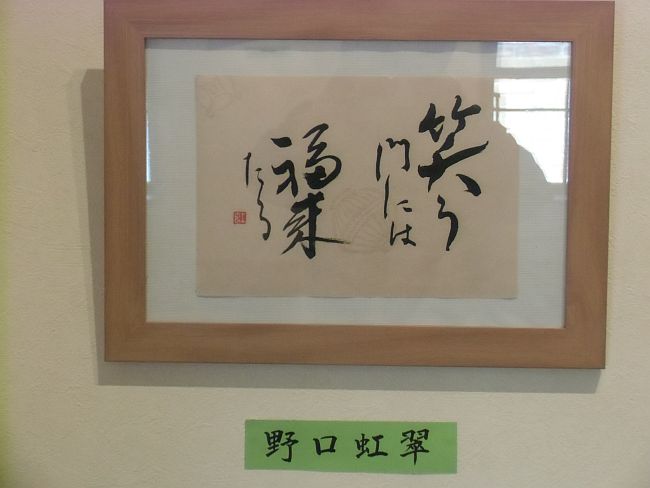 笑う
門には
福来
たる
野口虹翠